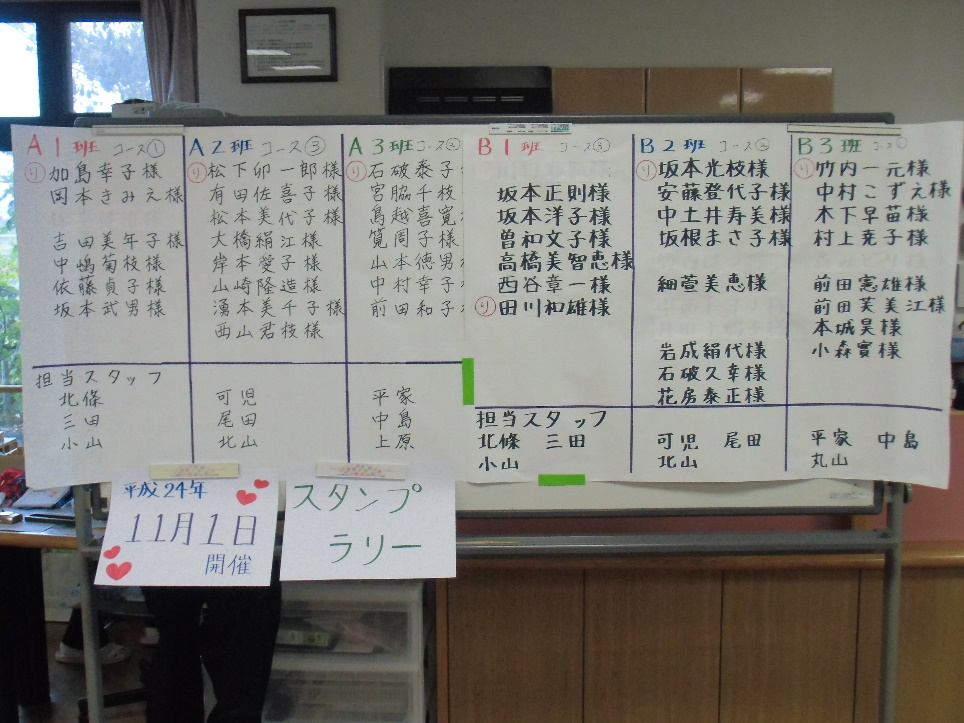 A1班 コース①
り 加島幸子様
岡本きみえ様
吉田美年子様
中嶋菊枝様
依藤貞子様
坂本武男様
担当スタッフ
北條
三田
小山
A2班 コース③
り 松下卯一郎様
有田佐喜子様
松本美代子様
大橋絹江様
岸本愛子様
山崎隆造様
湧本美千子様
西山君枝様
可児
尾田
北山
A3班 コース
り 石破泰子
宮脇千枝
島越喜寛
筧周子様
山本徳男
中村幸子
前田和子
平家
中島
上原
B1班 コース⑤
坂本正則様
坂本洋子様
曽和文子様
高橋美智恵様
西谷章一様
り 田川和雄様
担当スタッフ
北條 三田
小山
B2班 コース
り 坂本光枝様
安藤登代子様
中土井寿美様
坂根まさ子様
細萱美恵様
岩成絹代様
石破久幸様
花房泰正様
可児 尾田
北山
B3班 コース
り 竹内一元様
中村こずえ様
木下早苗様
村上尭子様
前田憲雄様
前田芙美江様
本城昊様
小森實様
平家 中島
丸山
平成24年
11月1日
開催
スタンプ
ラリー